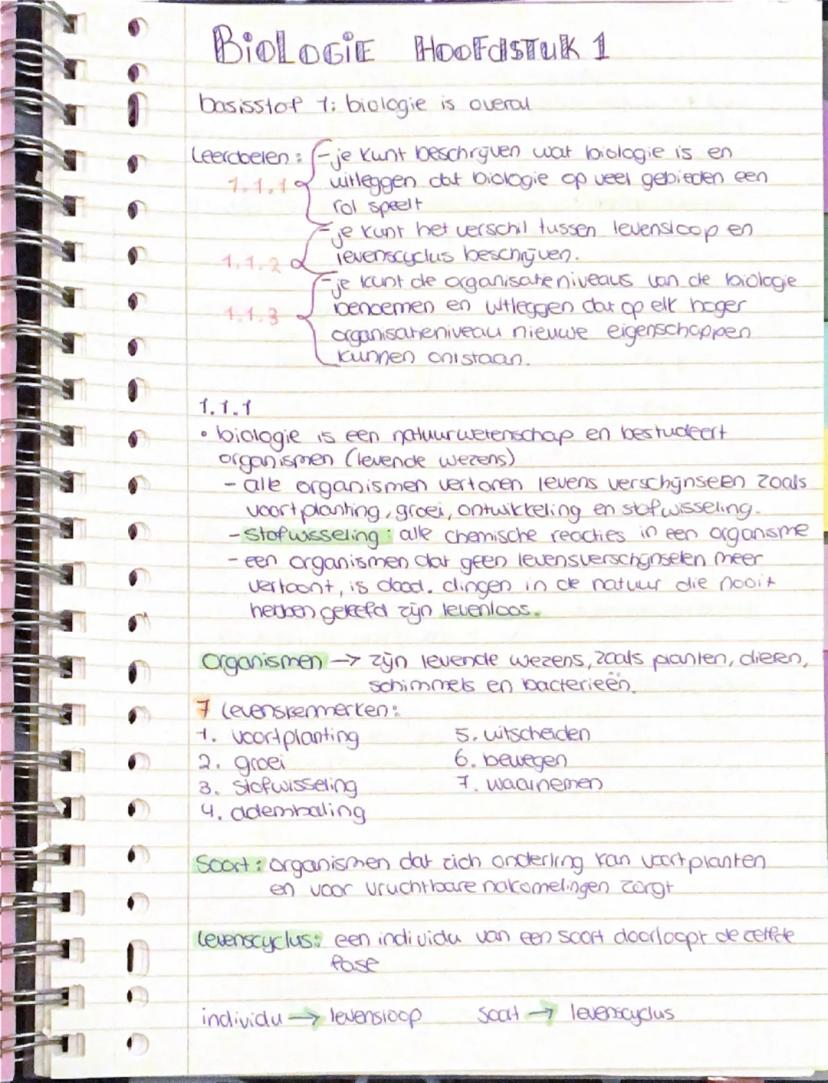 Biologie Hoofdstuk 1
basisstof 1: biologie is overal
Leerdoelen: - je kunt beschrijven wat biologie is en
1.1.1 uitleggen dat biologie op veel gebieden een
rol speelt
- je kunt het verschil tussen levensloop en
1.1.2 levenscyclus beschrijven.
- je kunt de organisatieniveaus van de biologie
1.1.3 benoemen en uitleggen dat op elk hoger
organisatieniveau nieuwe eigenschappen
kunnen ontstaan.
1.1.1
• biologie is een natuurwetenschap en bestudeert
organismen (levende wezens)
- alle organismen vertonen levens verschijnselen zoals
voortplanting, groei, ontwikkeling en stofwisseling.
- Stofwisseling: alle chemische reacties in een organisme
- een organismen dat geen levensverschijnselen meer
vertoont, is dood. dingen in de natuur die nooit
hebben geleefd zijn levenloos.
Organismen → zijn levende wezens, zoals planten, dieren,
schimmels en bacterieën.
7 levenskenmerken:
1. voortplanting 5. uitscheiden
2. groei 6. bewegen
3. stofwisseling 7. waarnemen
4. ademhaling
Soort: organismen dat zich onderling kan voortplanten
en voor vruchtbare nakomelingen zorgt
Levenscyclus: een individu van een soort doorloopt dezelfde
fase
individu → levensloop soort → levenscyclus